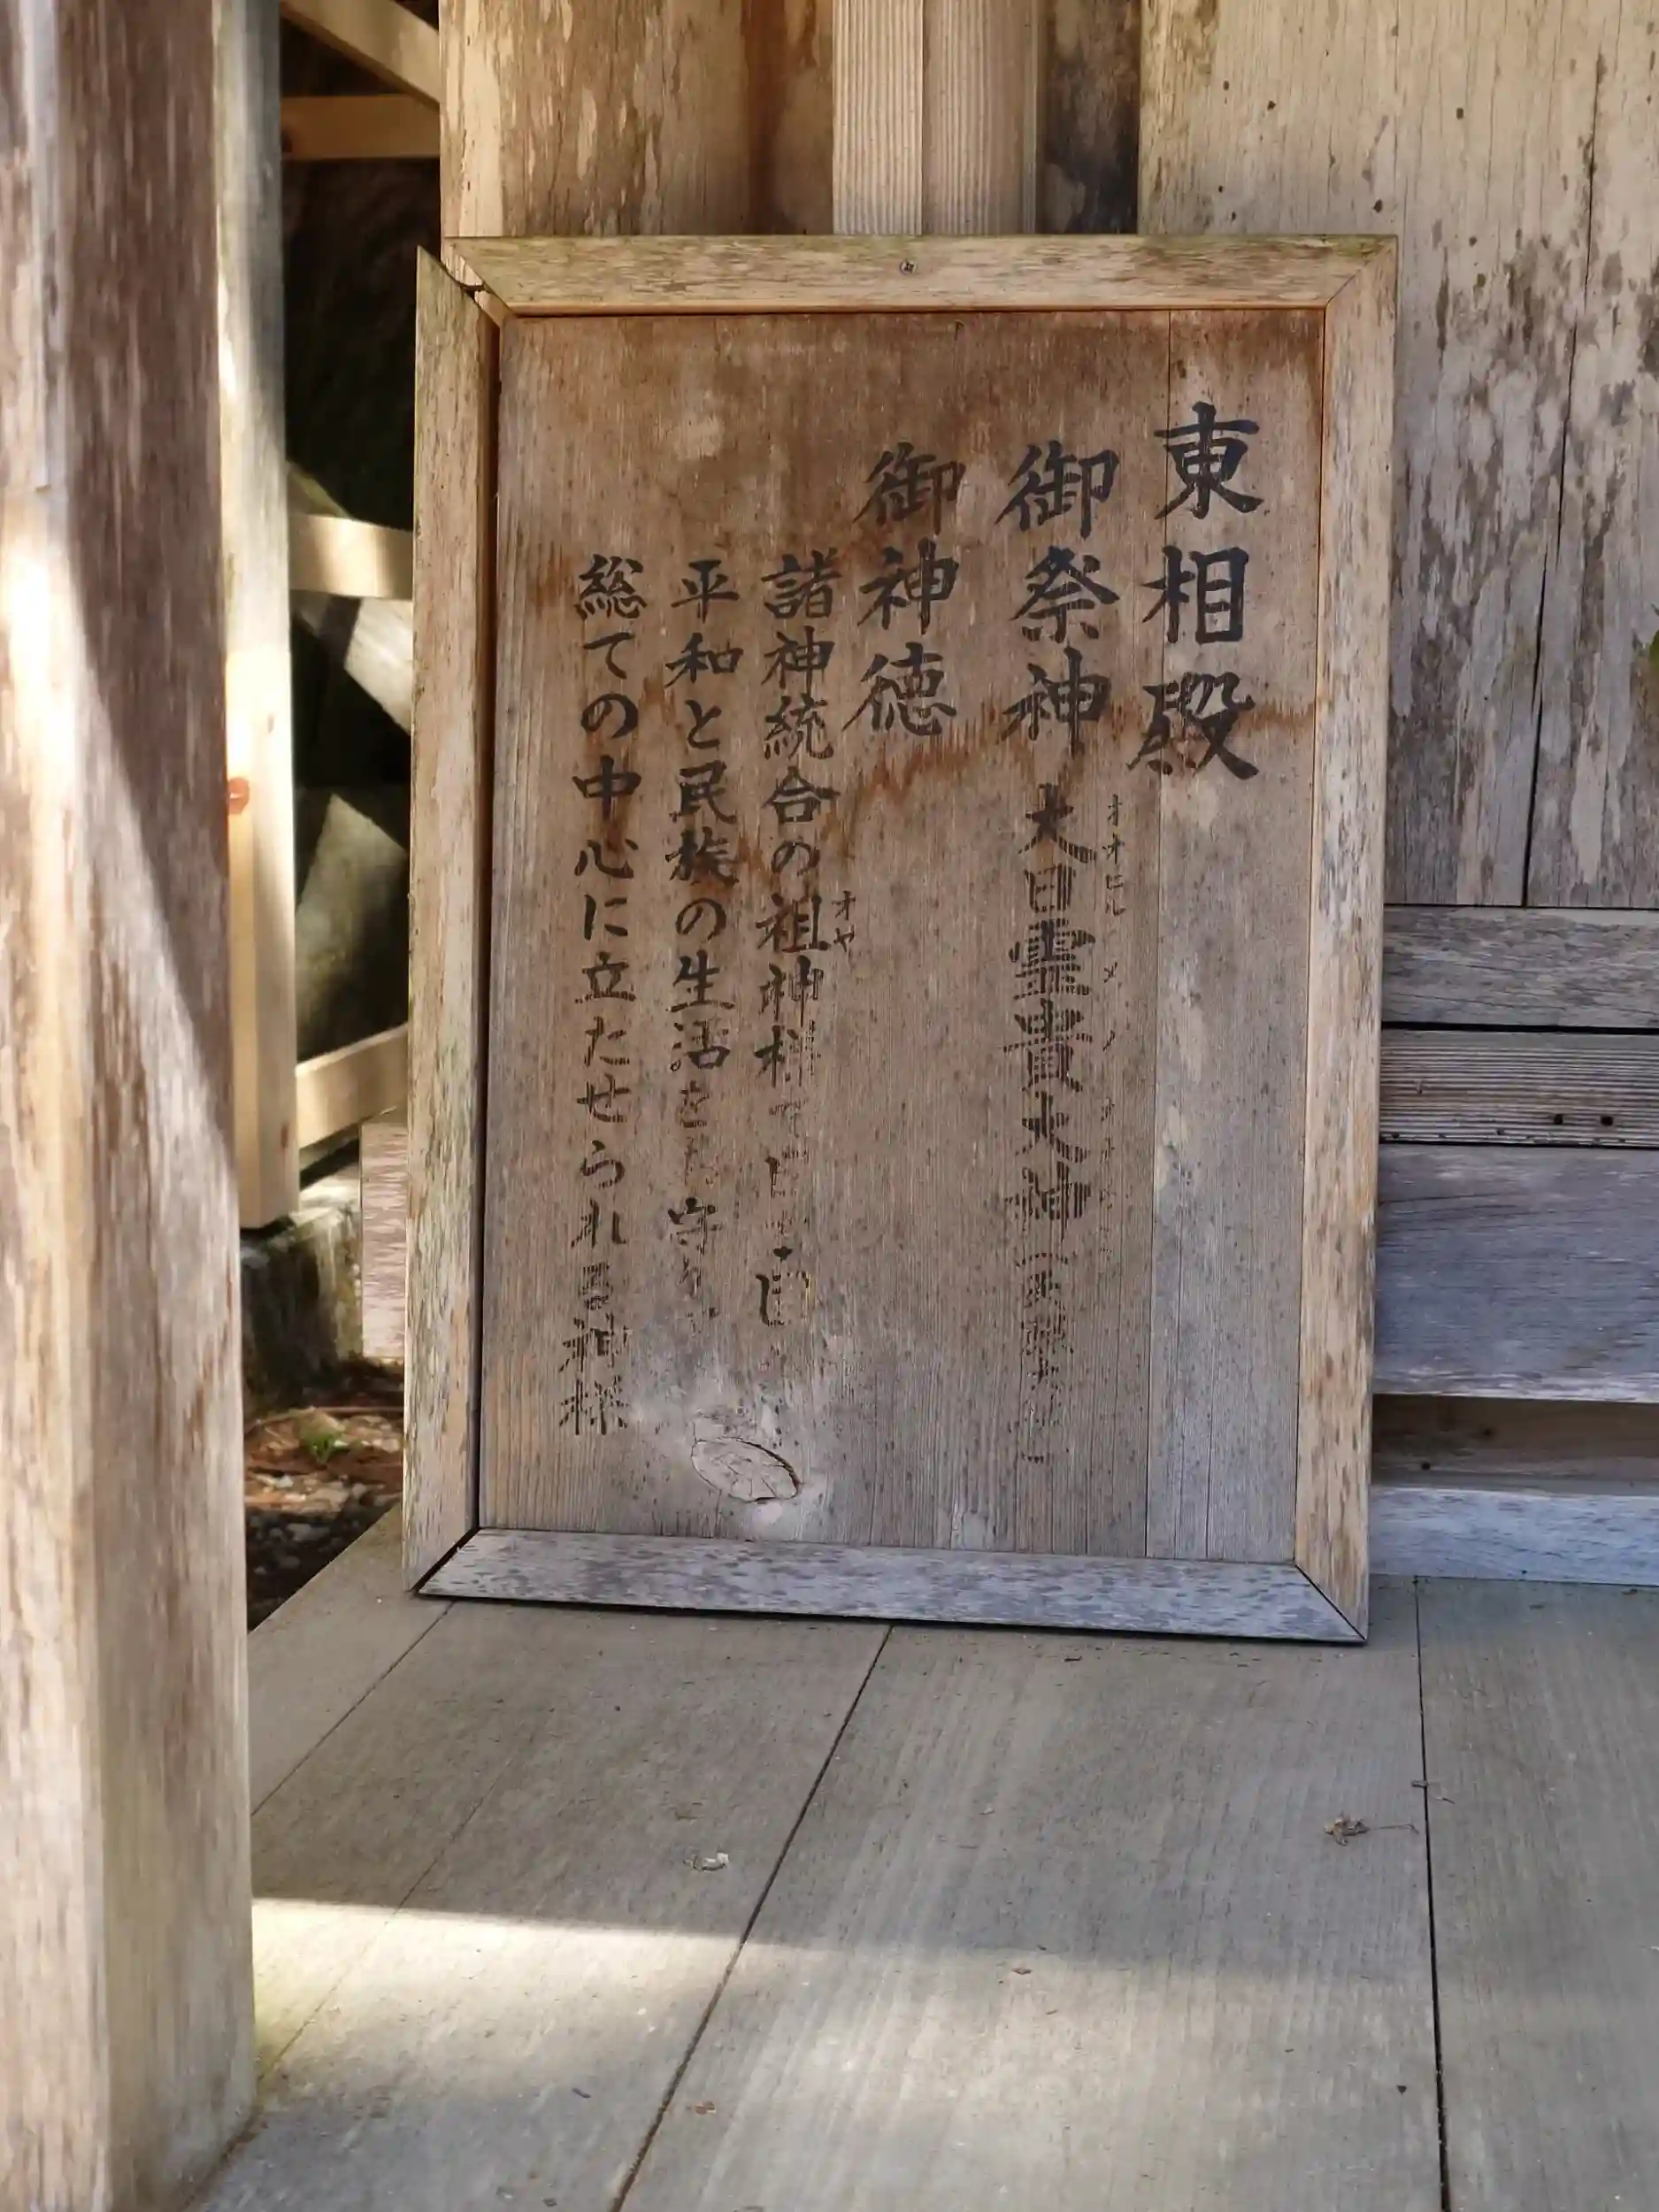 東相殿
御祭神 大日霊貴大神
オオヒルメノ
御神徳
諸神統合の祖神様で
オヤ
平和と民族の生活をお守り
総ての中心に立たせられる神様